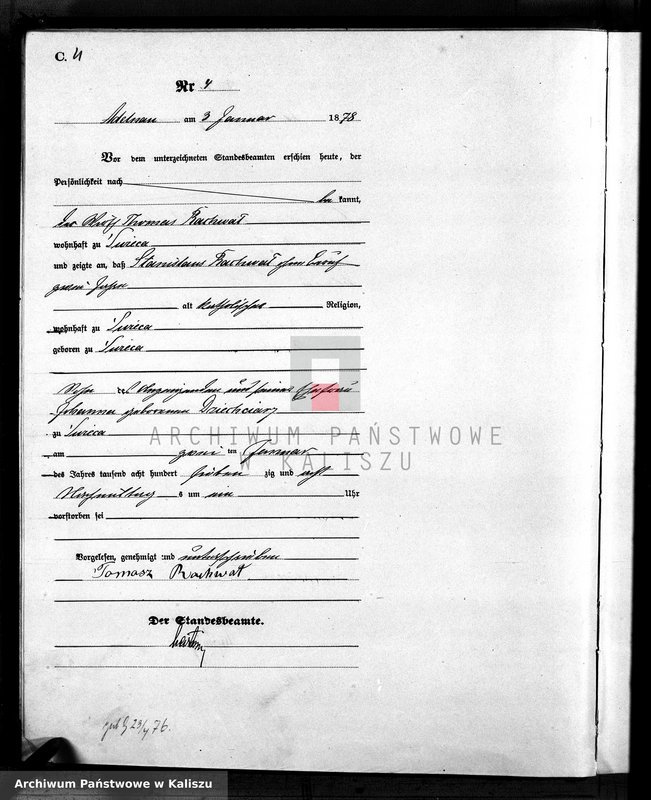 C. 4
Nr 4
Adelnau am 3 Januar 1878
Vor dem unterzeichneten Standesbeamten erschien heute, der
Persönlichkeit nach
be kannt,
der Thomas Rachwat
wohnhaft zu
und zeigte an, daß Stanislaus Rachwat ohne
zwei Jahre
alt katholischer Religion,
wohnhaft zu
geboren zu
Sohn des Anzeigenden und seiner Ehefrau
Johanna geborenen
zu
am zwei ten Januar
des Jahres tausend acht hundert sieben zig und acht
Nachmittags um ein Uhr
verstorben sei
Vorgelesen, genehmigt und unterschrieben
Tomasz Rachwat
Der Standesbeamte.
geb 23/4 76.
ARCHIWUM PAŃSTWOWE
W KALISZU
Archiwum Państwowe w Kaliszu